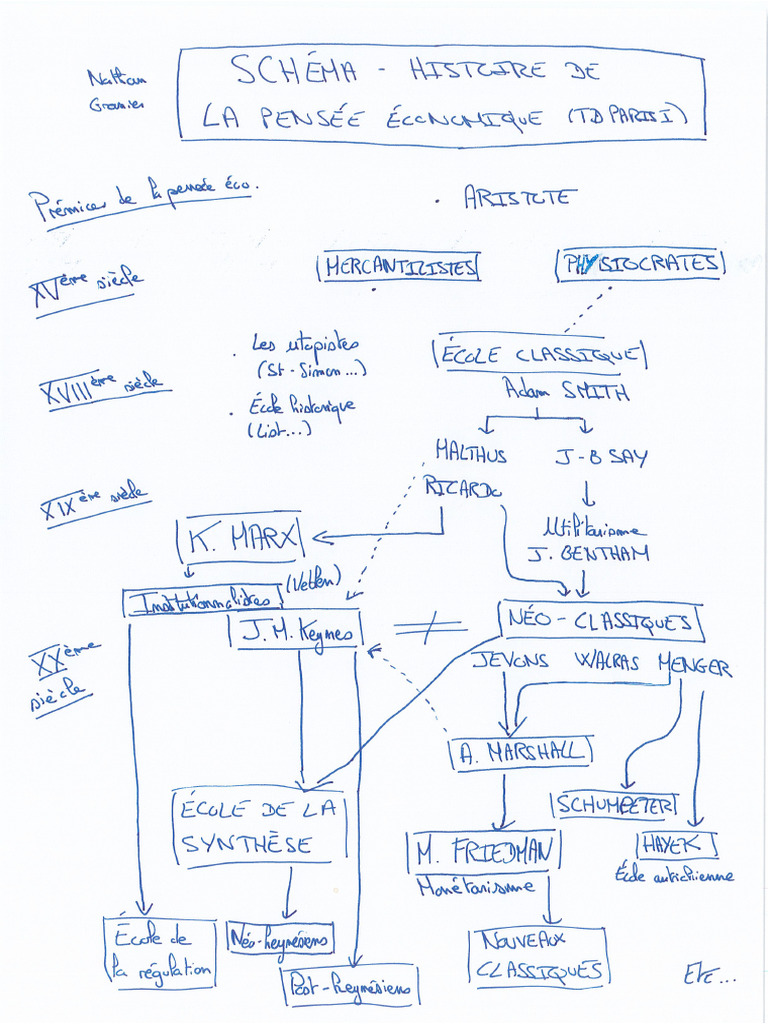 Nathan
Granier
SCHÉMA - HISTOIRE DE
LA PENSÉE ÉCONOMIQUE (TD PARISI)
Prémices de la pensée éco.
. ARISTOTE
XVème siècle
MERCANTILISTES
PHYSIOCRATES
. Les utopistes
(St-Simon...)
ÉCOLE CLASSIQUE
XVIIIème siècle
Adam SMITH
. École historique
(List...)
MALTHUS
J-B SAY
RICARDO
XIXème siècle
K. MARX
Utilitarisme
J. BENTHAM
Institutionnalistes
(Veblen)
J. M. Keynes
≠
NÉO-CLASSIQUES
XXème
siècle
JEVONS WALRAS MENGER
A. MARSHALL
ÉCOLE DE LA
SYNTHÈSE
SCHUMPETER
M. FRIEDMAN
Monétarisme
HAYEK
École autrichienne
École de
la régulation
Néo-keynésiens
NOUVEAUX
CLASSIQUES
Post-keynésiens
Etc...